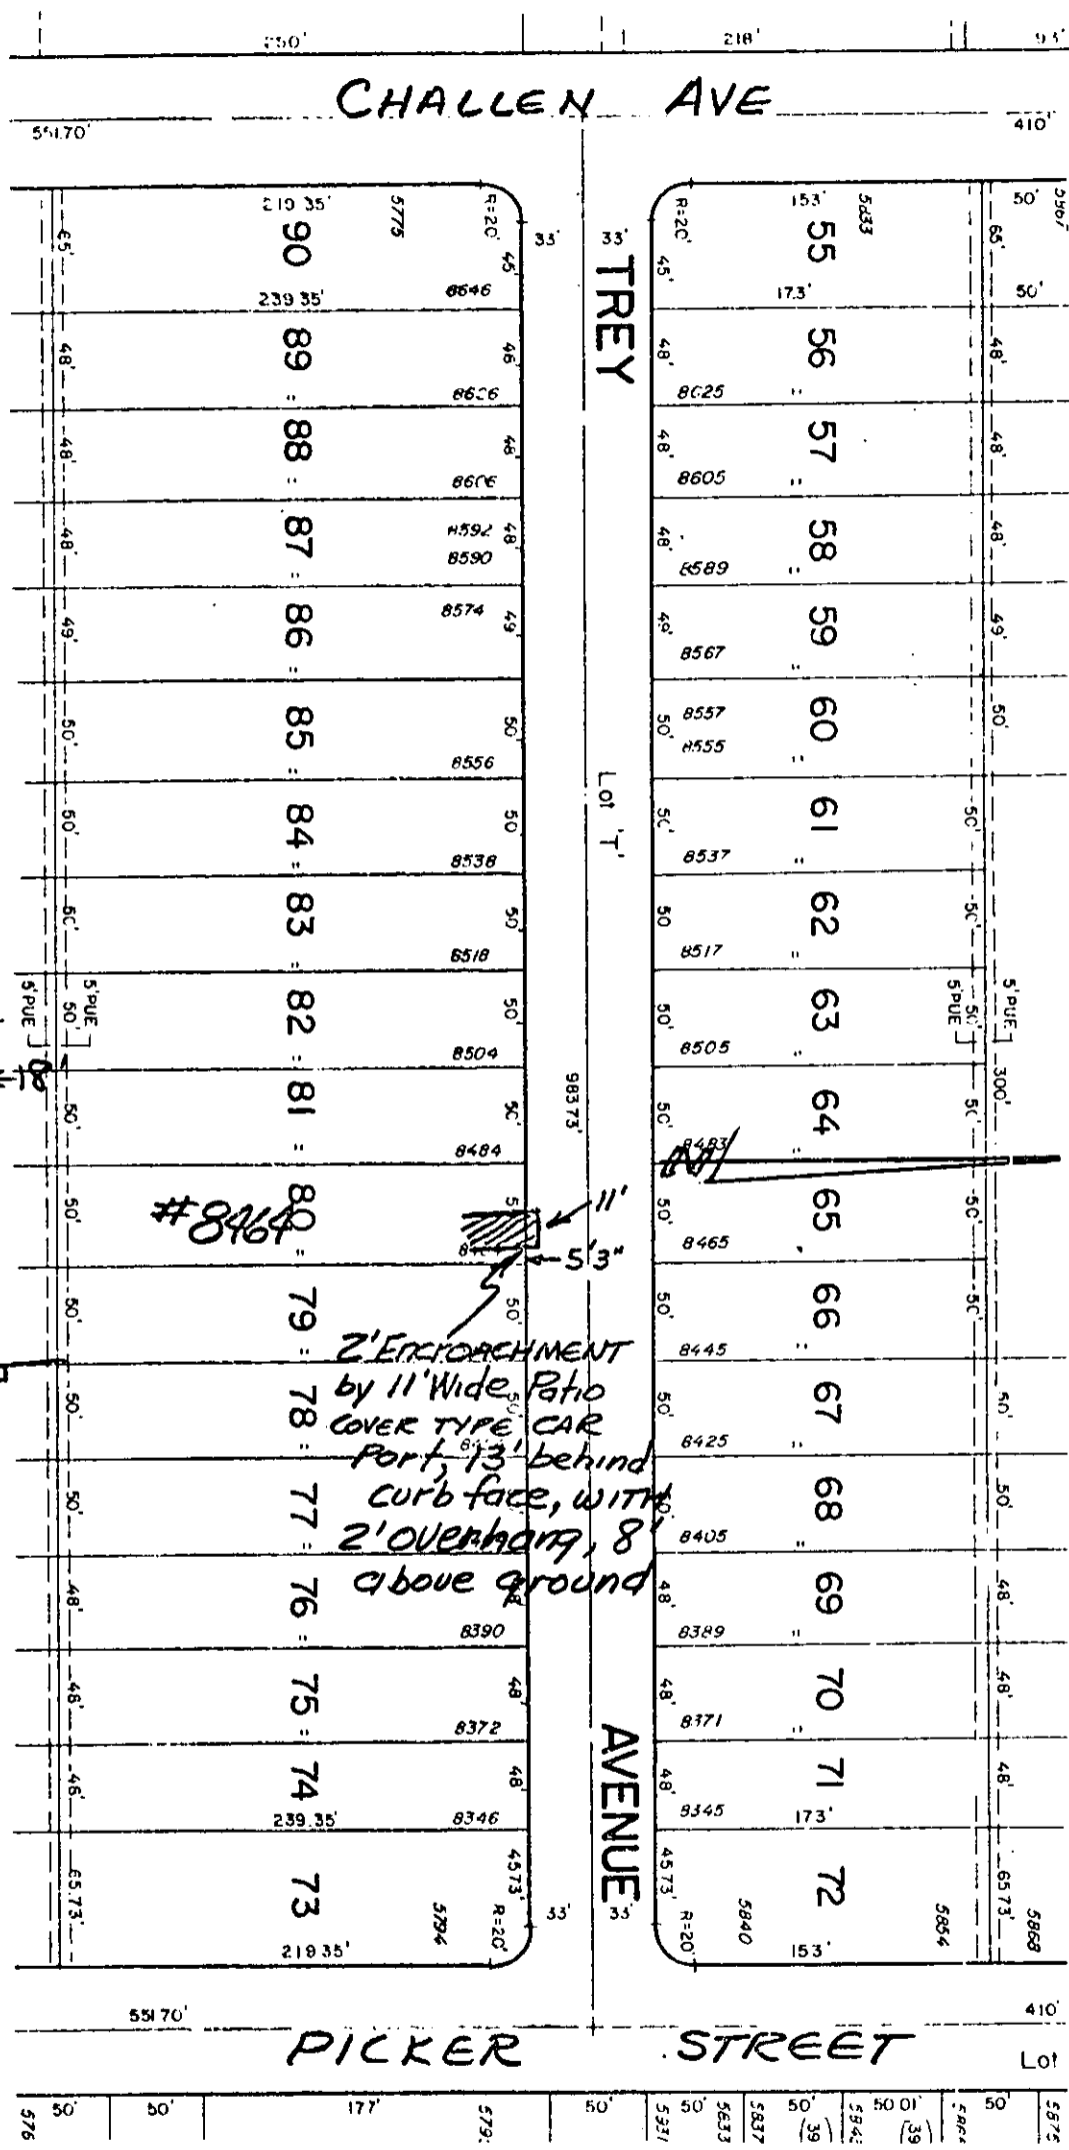 250'
218'
93'
CHALLEN AVE
551.70'
410'
219.35'
5775
R=20'
33'
33'
R=20'
153'
5833
50'
5967
65'
90
45'
TREY
45'
55
65'
239.35'
8646
173'
50'
48'
89
"
8626
46'
48'
56
"
8625
48'
48'
88
"
8606
48'
48'
57
"
8605
48'
48'
87
"
8592
8590
48'
48'
58
"
8589
48'
49'
86
"
8574
49'
49'
59
"
8567
49'
50'
85
"
8556
50'
50'
60
"
8557
8555
50'
50'
84
"
8538
50'
Lot 'T'
50'
61
"
8537
50'
50'
83
"
8518
50'
50
62
"
8517
50'
5'PUE
50'
5'PUE
82
"
8504
50'
50'
63
"
8505
5'PUE
50'
5'PUE
300'
18'
50'
81
"
8484
50'
983.73'
50'
64
8483
50'
N
50'
#8464
80
"
11'
5'3"
50'
65
"
8465
50'
50'
79
"
50'
50'
66
"
8445
50'
2' ENCROACHMENT
by 11' Wide Patio
COVER TYPE CAR
Port, 13' behind
curb face, WITH
2' overhang, 8'
above ground
50'
78
"
50'
50'
67
"
8425
50'
50'
77
"
50'
68
"
8405
50'
48'
76
"
8390
48'
48'
69
"
8389
48'
48'
75
"
8372
48'
48'
70
"
8371
48'
48'
74
239.35'
8346
48'
AVENUE
48'
71
8345
173'
48'
65.73'
73
5794
45.73'
R=20'
33'
33'
45.73'
R=20'
72
5840
5854
65.73'
5868
219.35'
153'
551.70'
410'
PICKER STREET
Lot
50'
50'
177'
50'
5831
50'
5833
5837
50'
(39)
50.01'
(39)
50'
5875